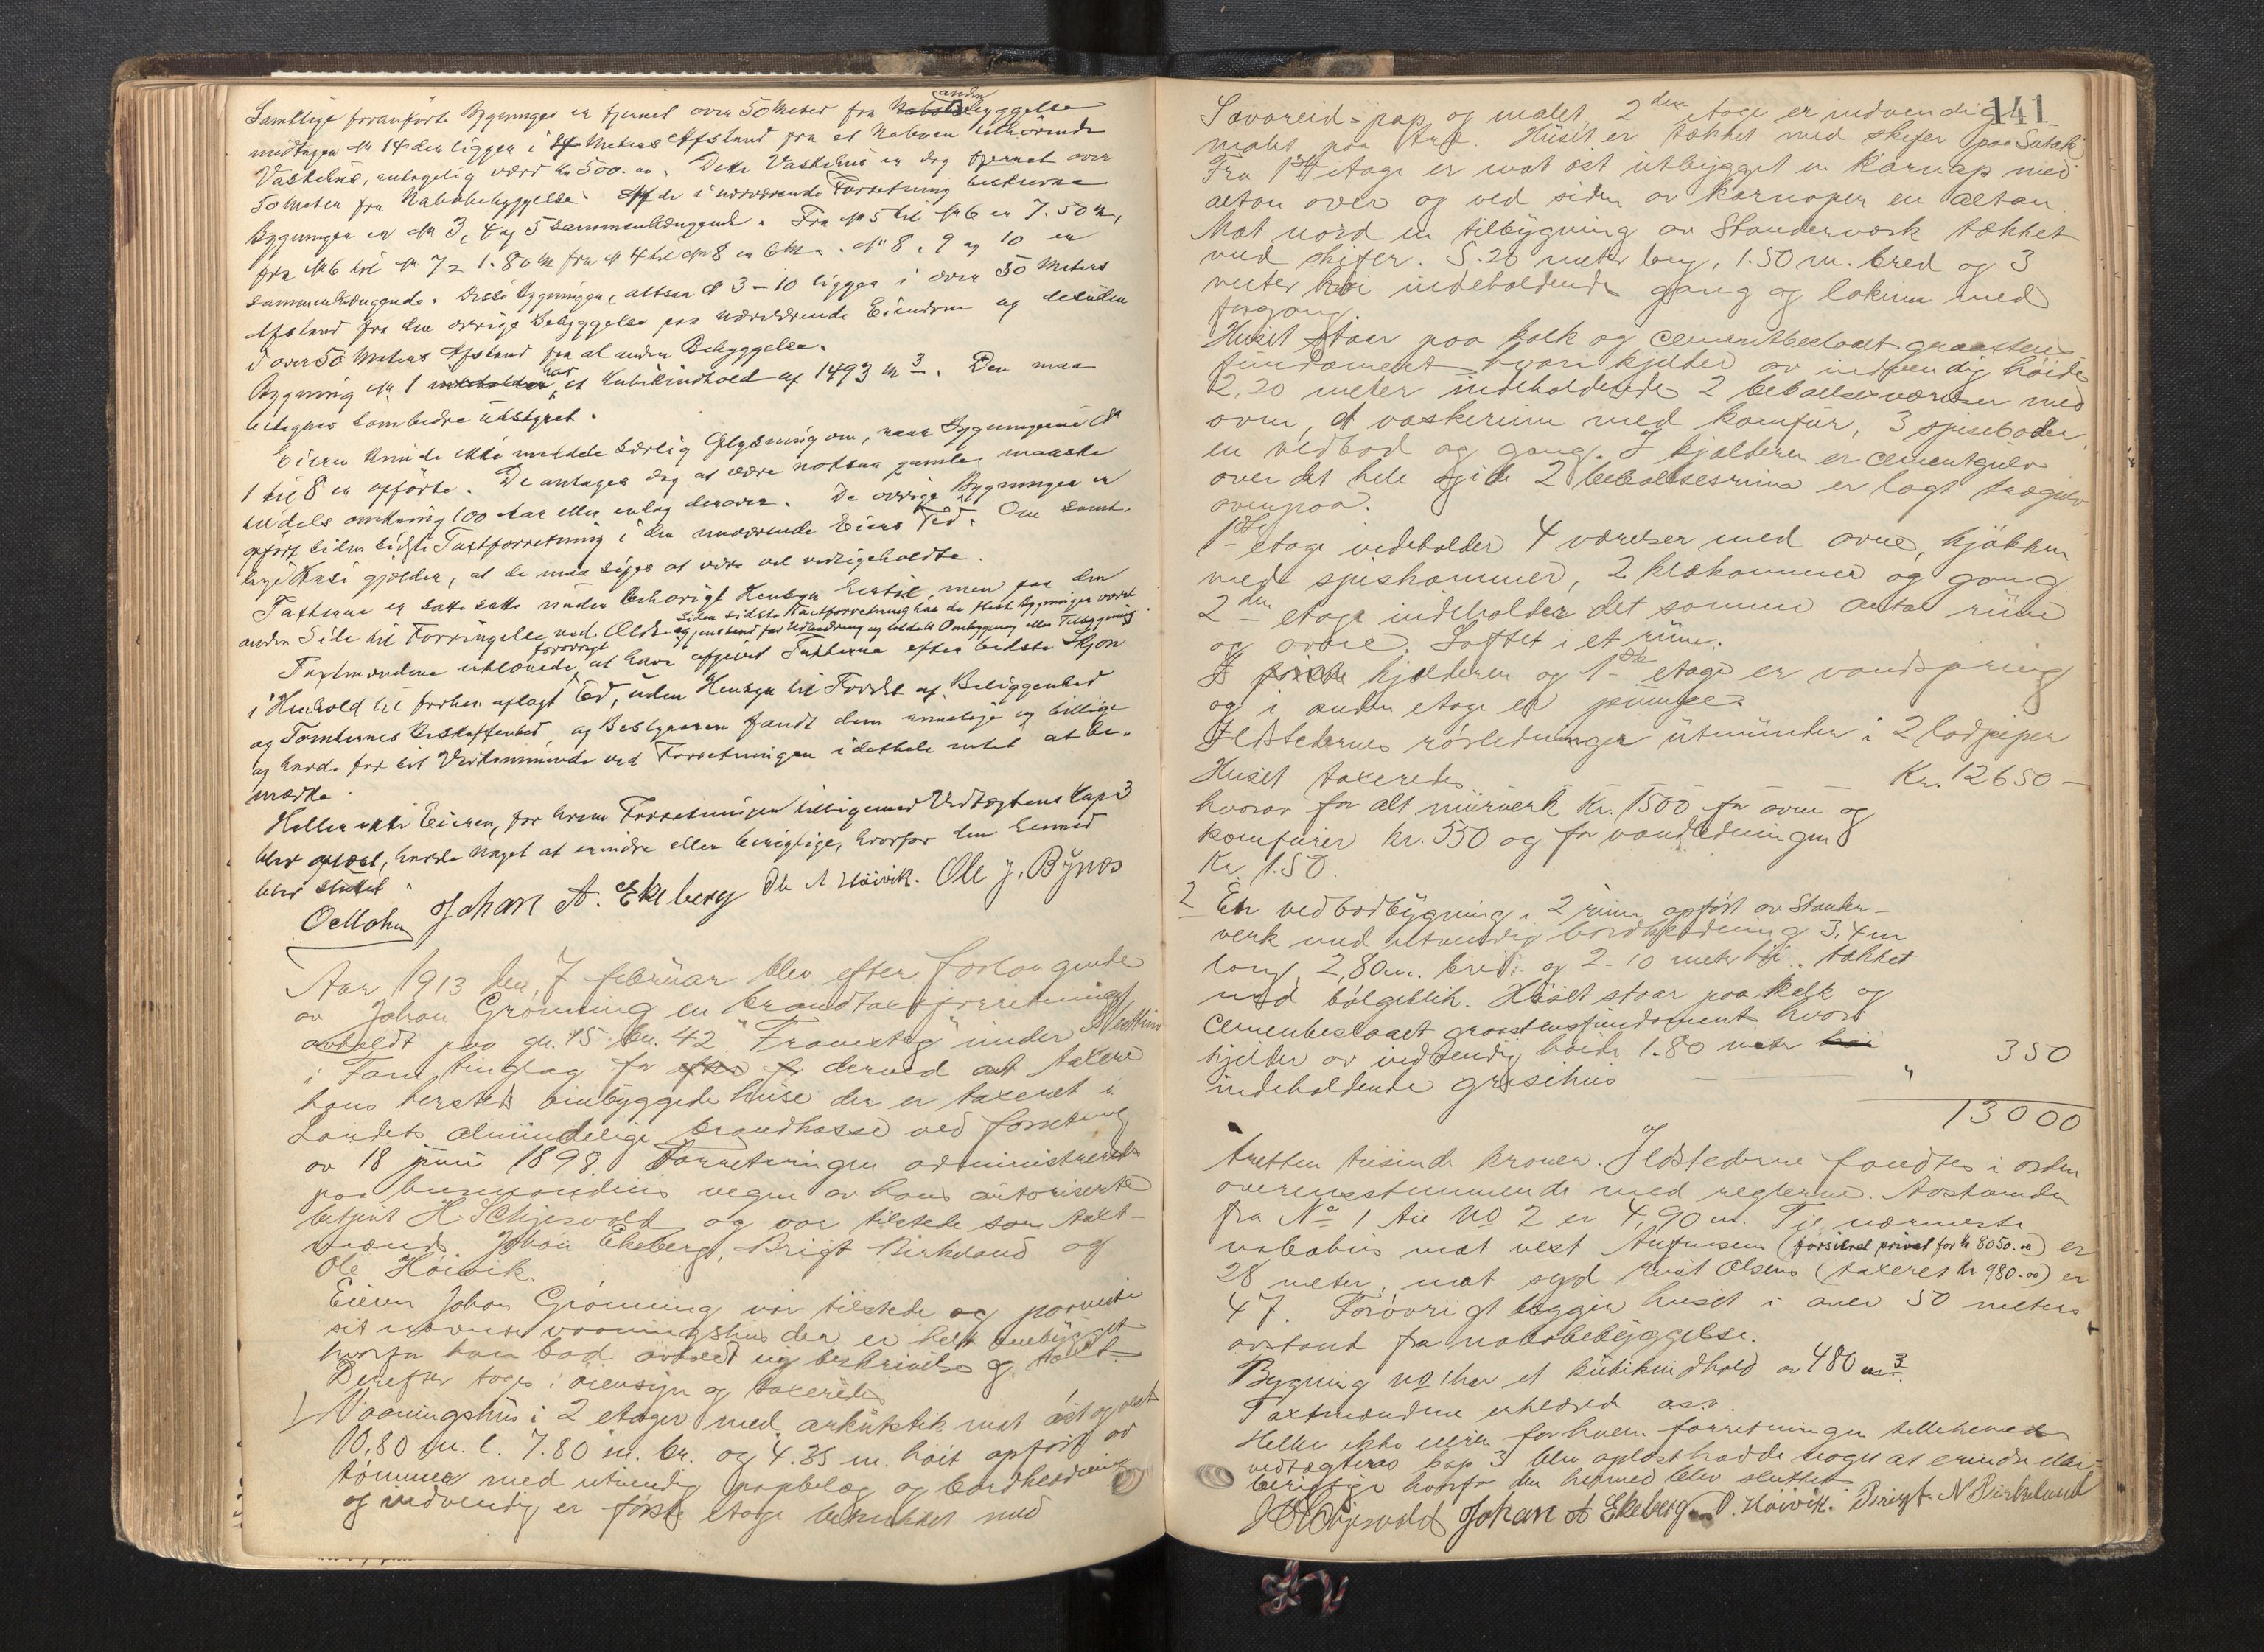 Samtlige foranførte Bygninger er fjernet over 50 Meter fra anden Bebyggelse
undtagen № 14 der ligger i Meters Afstand fra et Naboen tilhørende
Vaskehus, antagelig værd Kr 500.00. Dette Vaskehus er dog fjernet over
50 Meter fra Nabobebyggelse. Af de i nærværende Forretning beskrevne
Bygninger er № 3, 4 og 5 sammenhængende. Fra № 5 til № 6 er 7.50 m,
fra № 6 til № 7 = 1.80 m fra № 4 til № 8 er 6 m. № 8, 9 og 10 er
sammenhængende. Disse Bygninger, altsaa № 3-10 ligger i over 50 Meters
Afstand fra den øvrige Bebyggelse paa nærværende Eiendom og desuden
i over 50 Meters Afstand fra al anden Bebyggelse.
Bygning № 1 har et Kubikindhold af 1493 m3. Den maa
betegnes som bedre udstyret.
Eieren kunde ikke meddele særlig Oplysning om, naar Bygningerne №
1 til 8 er opførte. De antages dog at være noksaa gamle, maaske
tildels omkring 100 Aar eller endog derover. De øvrige Bygninger er
opført siden sidste Taxtforretning i den nuværende Eiers Tid. Om samt-
lige Huse gjælder, at de maa siges at være vel vedligeholdte.
Taxterne er satte under behørigt Hensyn hertil, men paa den
anden Side til Forringelse ved Ælde. Siden sidste Taxtforretning har de fleste Bygninger været
gjenstand for Udbedring og tildels Ombygning eller Tilbygning
Taxtmændene erklærede forøvrigt at have afgivet Taxterne efter bedste Skjøn
i Henhold til forhen aflagt Ed, uden Hensyn til Fordel af Beliggenhed
og Tomternes Beskaffenhed, og Bestyreren fandt dem rimelige og billige
og havde for sit Vedkommende ved Forretningen idethele intet at be-
mærke.
Heller ikke Eieren, for hvem Forretningen tilligemed Vedtægtens Kap 3
blev oplæst, havde noget at erindre eller berigtige, hvorfor den hermed
blev sluttet.
Johan A. Ekeberg Ole A Høivik. Ole J. Bynæs
Aar 1913 den 7 februar blev efter forlangende
av Johan Grønning en brandtaxtforretning
avholdt paa gn. 15 br. 42 "Framstig" under
i Fane tinglag for derved at taxere
hans hersteds ombyggede huse der er taxeret i
Landets almindelige brandkasse ved forretning
av 18 juni 1898. Forretningen administreredes
paa lensmandens vegne av hans autoriserte
betjent H. Schjesvold og var tilstede som taxt-
mænd Johan Ekeberg, Brigt Birkeland og
Ole Høivik.
Eieren Johan Grønning var tilstede og paaviste
sit vaaningshus der er helt ombygget
hvorfor han bad avholdt ny beskrivelse og taxt.
Derefter toges i øiensyn og taxeredes
1) Vaaningshus i 2 etager med arkutstik mot øst og vest
10.80 m. l. 7.80 m. br. og 4.35 m. høit opført av
tømmer med utvendig papbelæg og bordklædning
og indvendig er første etage beklædt med
141
pap og malet, 2den etage er indvendig
malet paa Huset er tækket med skifer paa Sutak
Fra 1ste etage er mot øst utbygget en karnap med
altan over og ved siden av karnapen en altan.
Mot nord en tilbygning av Standerværk tækket
med skifer. 5.20 meter lang, 1.50 m. bred og 3
meter høi indeholdende gang og lokum med
forgang.
Huset staar paa kalk og cementbeslaaet graasten
fundament hvori kjelder av indvendig høide
2.20 meter indeholdende 2 beboelsesværelser med
ovne, et vaskerum med komfur, 3 spiseboder,
en vedbod og gang. I kjælderen er cementgulv
over det hele og i de 2 beboelsesrum er lagt trægulv
ovenpaa.
1ste etage indeholder 4 værelser med ovne, kjøkken
med spiskammer, 2 klækammer og gang
2den etage indeholder det samme antal rum
og ovne. Loftet i et rum.
I kjælderen og 1ste etage er vandspring
og i anden etage er pumpe.
Ildstedernes rørledninger utmunder i 2 lodpiper
Huset taxeredes Kr. 12650 —
hvorav for alt murverk Kr. 1500 for ovne og
komfurer kr. 550 og for vandledningen
Kr. 150.
2 En vedbodbygning i 2 rum opført av Stander-
verk med utvendig bordklædning 3,4 m
lang, 2,80 m. bred og 2.10 meter høi, tækket
med bølgeblik. Huset staar paa kalk og
cementbeslaaet graastensfundament hvori
kjelder av indvendig høide 1.80 meter
indeholdende grisehus " 350
13000
tretten tusinde kroner. Ildstederne fandtes i orden
overensstemmende med reglerne. Avstanden
fra No 1 til No 2 er 4,90 m. Til nærmeste
nabohus mot vest (forsikret privat for kr 8050.00) er
28 meter, mot syd Olsens (taxeret kr 980.00) er
47. Forøvrigt ligger huset i over 50 meters
avstand fra nabobebyggelse.
Bygning No 1 har et kubikindhold av 480 m3
Taxtmændene erklæred os.v.
Heller ikke eieren for hvem forretningen tillikemed
vedtægtens kap 3 blev oplæst hadde noget at erindre eller
berigtige hvorfor den hermed blev sluttet
H Schjesvold Johan A Ekeberg O. Høivik. Brigt N Birkeland